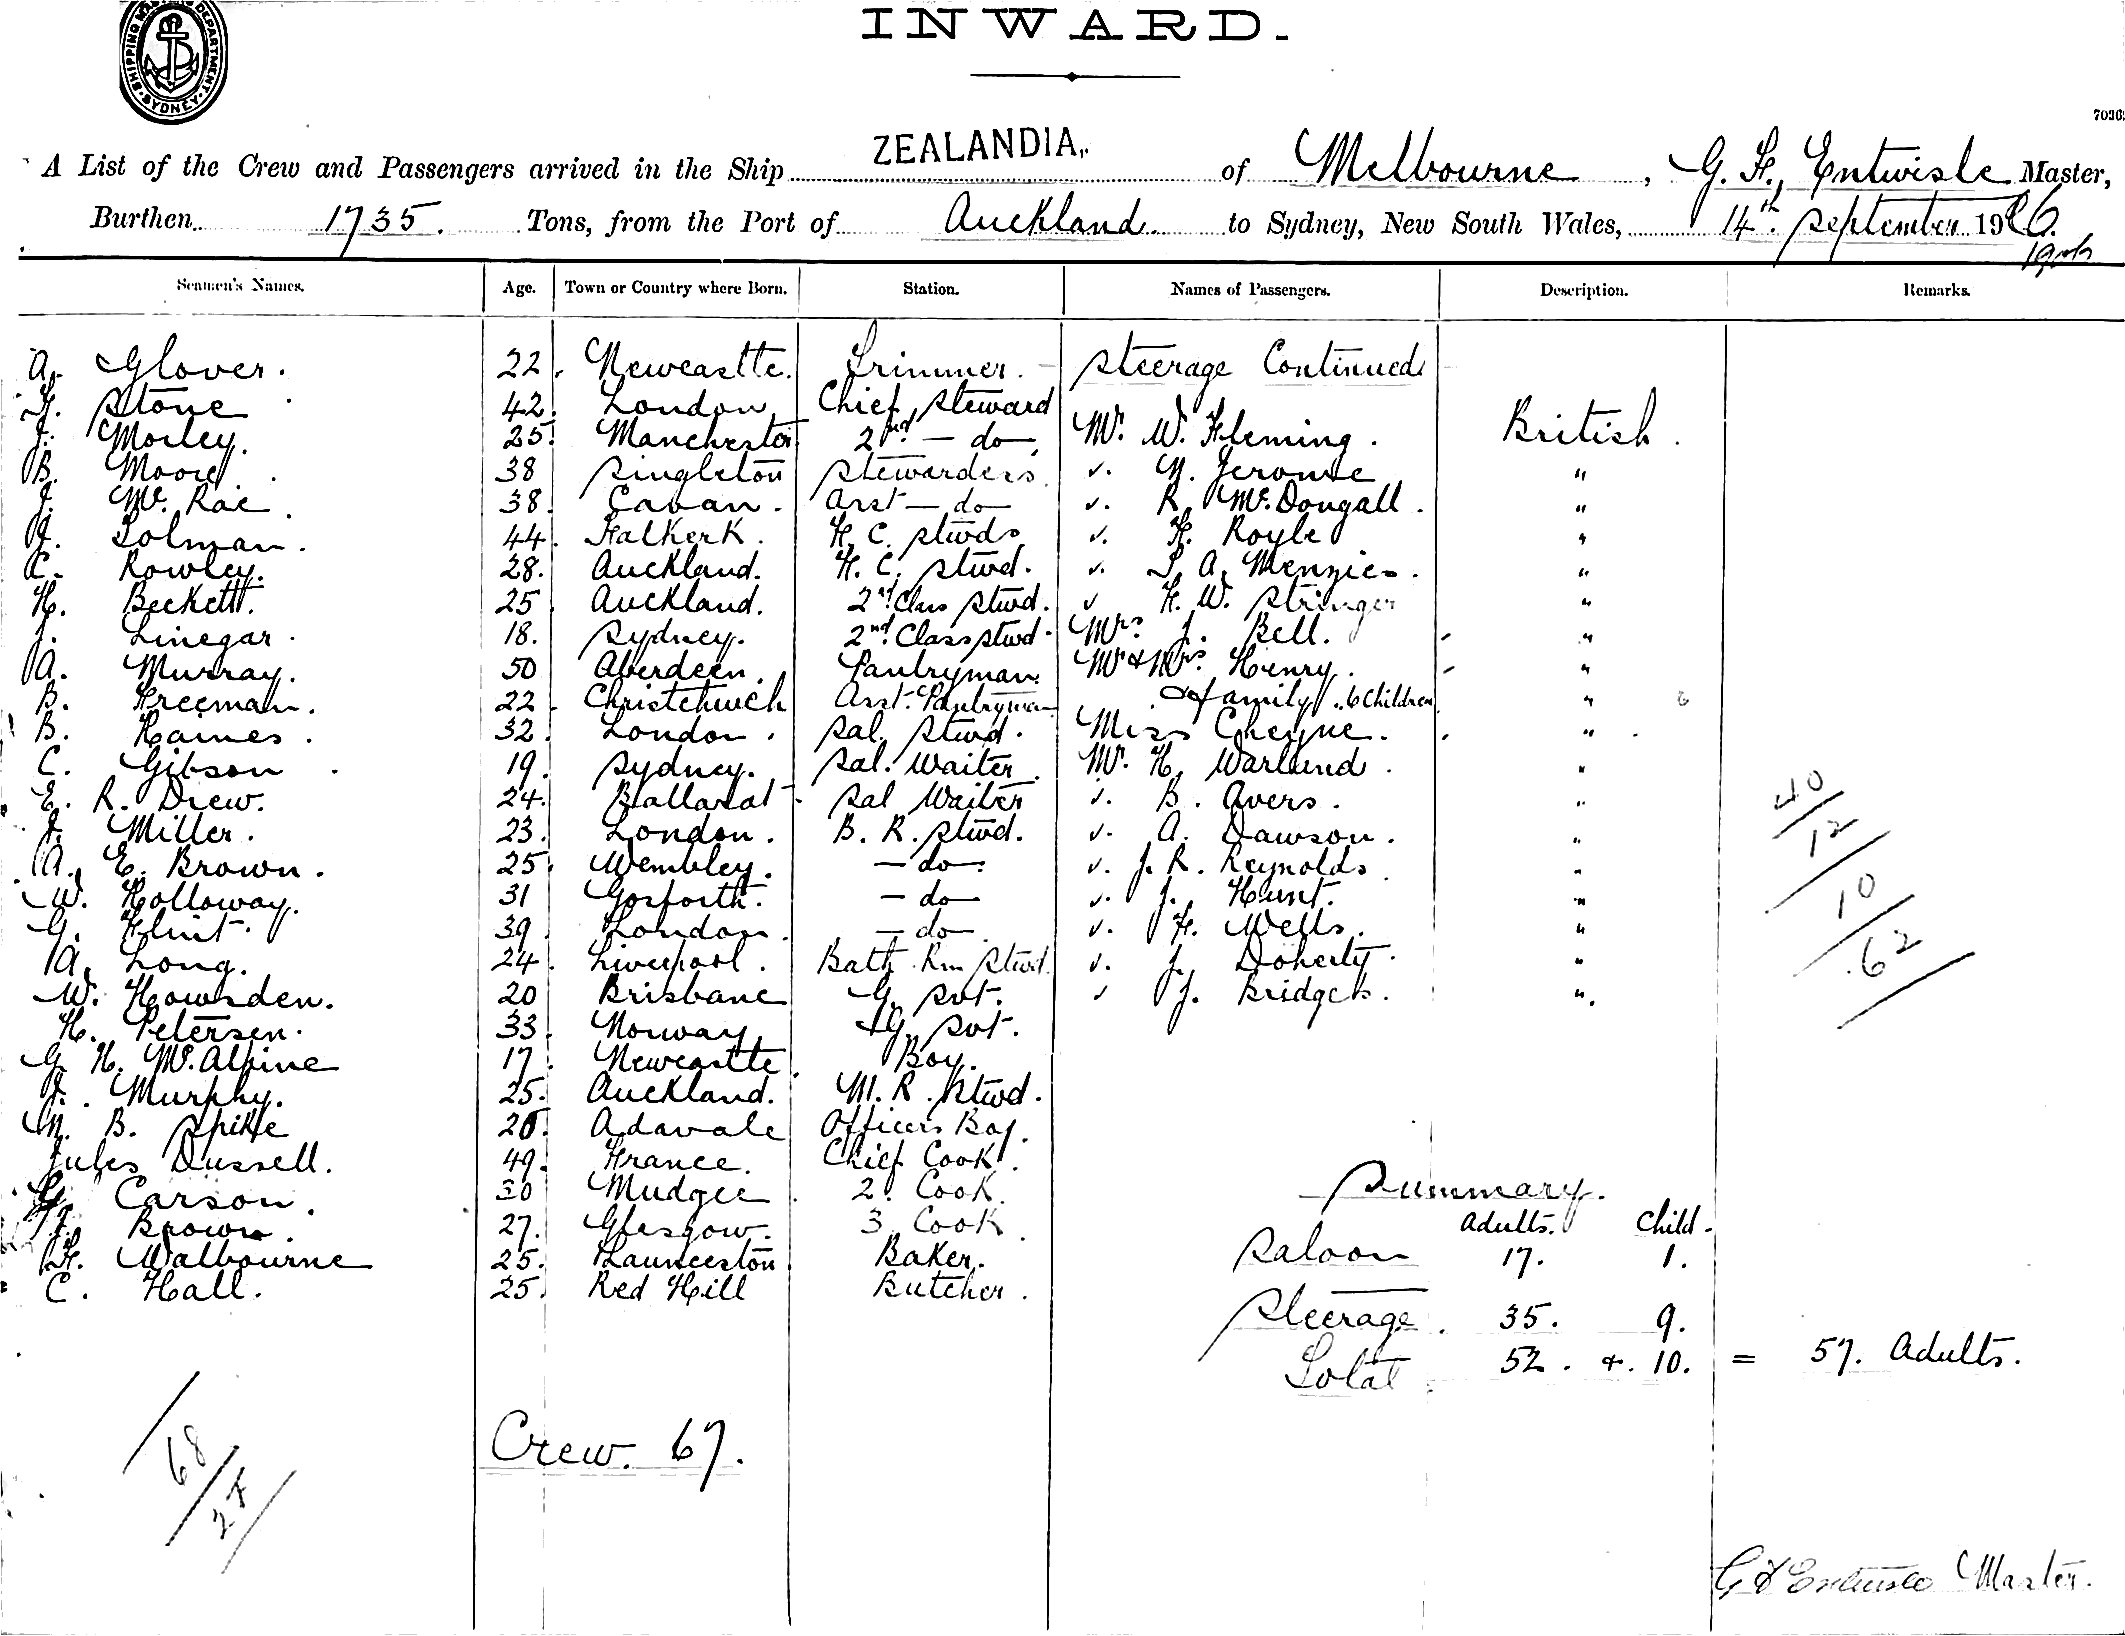 INWARD.
SHIPPING MASTERS DEPARTMENT. SYDNEY.
7036
A List of the Crew and Passengers arrived in the Ship ZEALANDIA, of Melbourne, G. F. Entwisle Master,
Burthen 1735. Tons, from the Port of Auckland to Sydney, New South Wales, 14th September 1906.
Seamen's Names. Age. Town or Country where Born. Station. Names of Passengers. Description. Remarks.
A. Glover. 22. Newcastle. Trimmer. Steerage Continued
F. Stone 42. London Chief Steward
J. Morley. 25. Manchester 2nd - do Mr. W. Fleming. British.
B. Moore 38 Singleton Stewardess v. N. Jerome "
J. Mc. Rae. 38. Cavan. Asst - do v. R. McDougall. "
J. Tolman. 44. Falkerk. F. C. Stwds v. F. Royle "
C. Rowley. 28. Auckland. F. C. Stwd. v. T. A. Menzies. "
H. Beckett. 25. Auckland. 2nd Class Stwd. v F. W. Stringer "
J. Linegar. 18. Sydney. 2nd Class Stwd. Mrs J. Bell. "
A. Murray. 50 Aberdeen. Pantryman. Mr & Mrs. Henry. "
B. Freeman. 22. Christchurch Asst. Pantryman & family .. 6 Children "
B. Haines. 32. London. Sal. Stwd. Miss Cheyne. "
C. Gibson 19. Sydney. Sal. Waiter. Mr. H. Warland. "
E. R. Drew. 24. Ballarat. Sal Waiter v. B. Avers. "
J. Miller. 23. London. B. R. Stwd. v. A. Dawson. "
A. E. Brown. 25. Wembley. - do. v. J. R. Reynolds. "
W. Holloway. 31 Gosforth. - do v. J. Hunt. "
G. Flint. 39. London. - do v. F. Wells. "
A. Long. 24. Liverpool. Bath Rm Stwd. v. J. Doherty. "
W. Howsden. 20 Brisbane G. Svt. v J. Bridgets. "
H. Petersen. 33. Norway G. Svt.
G. H. Mc. Alpine 17. Newcastle. Boy.
J. Murphy. 25. Auckland. M. R. Stwd.
M. B. Spike Adavale Officers Boy.
Jules Dussell. 49. France. Chief Cook.
Carson. 30 Mudgee 2. Cook.
J. Brown. 27. Glasgow. 3 Cook
F. Walbourne 25. Launceston Baker.
C. Hall. 25. Red Hill Butcher.
40
12
10
62
Summary.
Adults. Child.
Saloon 17. 1.
Steerage. 35. 9.
Total 52. & 10. = 57. Adults.
Crew. 67.
68
27
G F Entwisle Master.